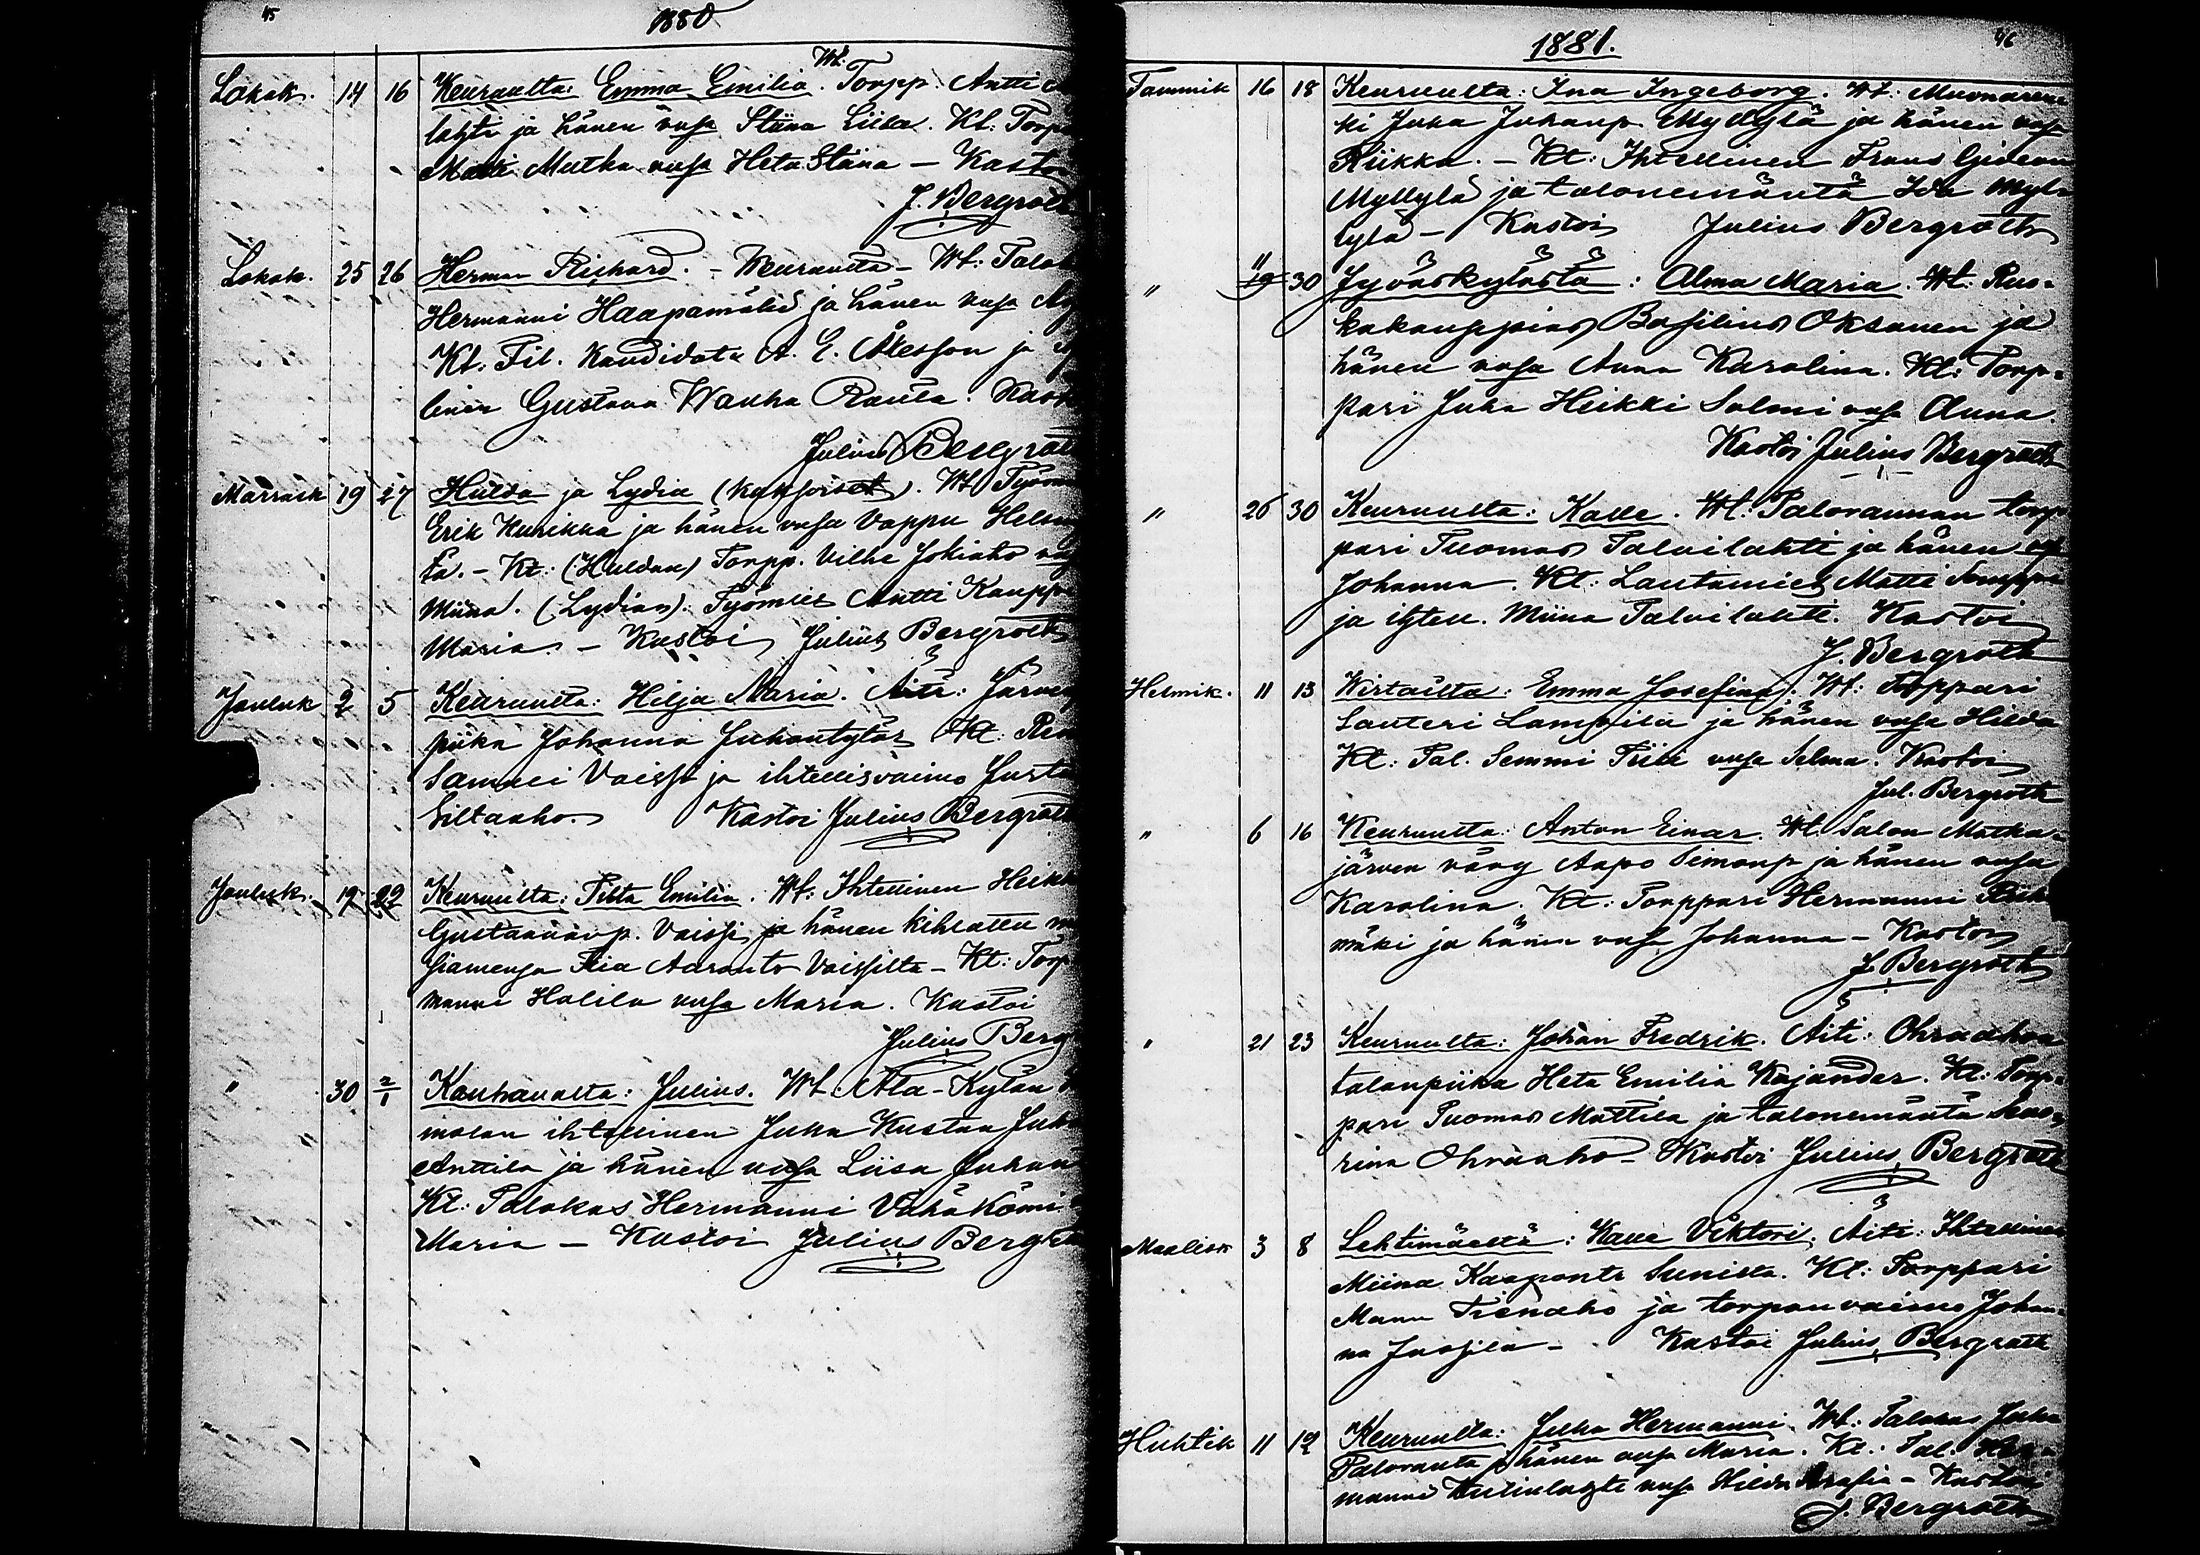 45
1880
Wt.
Lokak. 14 16 Keuruulta: Emma Emilia. Torpp. Antti
lahti ja hänen vsa Stiina Liisa. Kt: Torp
Matti Mutka vsa Heta Stiina – Kasto
J. Bergroth
Lokak. 25 26 Herman Richard. – Keuruulta – Wt: Talok
Hermanni Haapamäki ja hänen vsa
Kt. Fil. Kandidate A. E. ja
linen Gustava Wanha Ranta. Kast
Julius Bergrot
Marrask 19 27 Hulda ja Lydia (kaksoiset). Wt. Työm
Erik Kurikka ja hänen vsa Vappu
ta. – Kt: (Huldan) Torpp. Vilhe Jokiaho
Miina. (Lydian). Työmies Antti Kaupp
Maria. – Kastoi Julius Bergroth
Jouluk 2 5 Keuruulta: Hilja Maria. Äiti: Järven
piika Johanna Juhontytär Kt: Ren
Sameli Vaissi ja ihtellisvaimo Justa
Siltaaho. Kastoi Julius Bergroth
Jouluk. 19 22 Keuruulta: Tilta Emilia. Wt: Ihtellinen Heikk
Gustaavinp. Vaissi ja hänen kihlattu
siamensa Fia Aaronto Vaissilta – Kt: Torp
manni Halila vsa Maria. Kastoi
Julius Berg
" 30 2/1 Kauhavalta: Julius. Wt. Ala-Kylän
molan ihtellinen Juha Kustaa Juh
Anttila ja hänen vsa Liisa Juhan
Kt: Talokas Hermanni Vähäkömi
Maria – Kastoi Julius Bergro
46
1881.
Tammik 16 18 Keuruulta: Ina Ingeborg. Wt: Muonaren-
ki Juha Juhanp. Myllylä ja hänen vsa
Riikka. – Kt: Ihtellinen Frans Gideon
Myllylä ja talonemäntä Ida Myl-
lylä – Kastoi Julius Bergroth
" 11 19 30 Jyväskylästä: Alma Maria. Wt. Rus-
kakauppias Basilius Oksanen ja
hänen vsa Anna Karolina. Kt: Torp-
pari Juha Heikki Salmi vsa Anna.
Kastoi Julius Bergroth
" 26 30 Keuruulta: Kalle. Wt. Palorannan torp
pari Tuomas Talvilahti ja hänen
Johanna. Kt: Lautamies Matti
ja ihtell. Miina Talvilahti. Kastoi
J. Bergroth
Helmik. 11 13 Wirtailta: Emma Josefina. Wt: Torppari
Santeri Lampila ja hänen vsa Hilda
Kt: Tal. Semmi vsa Selma. Kastoi
Jul. Bergroth
" 6 16 Keuruulta: Anton Einar. Wt. Salon Matka-
järven väny Aapo Simonp. ja hänen vsa
Karolina. Kt: Torppari Hermanni
mäki ja hänen vsa Johanna – Kastoi
J. Bergroth
" 21 23 Keuruulta: Johan Fredrik. Äiti: Ohraahon
talonpiika Heta Emilia Kajander. Kt: Torp-
pari Tuomas Mattila ja talonemäntä
riina Ohraaho – Kastoi Julius Bergroth
Maalisk 3 8 Lehtimäeltä: Kalle Viktori. Äiti: Ihtellinen
Miina Kaaponts Sunista. Kt: Torppari
Manu Tienaho ja torpanvaimo Johan-
na Jussila – Kastoi Julius Bergroth
Huhtik 11 12 Keuruulta: Juha Hermanni. Wt: Talokas Juha
Paloranta ja hänen vsa Maria. Kt: Tal. Her-
manni vsa Hilda – Kastoi
J. Bergroth